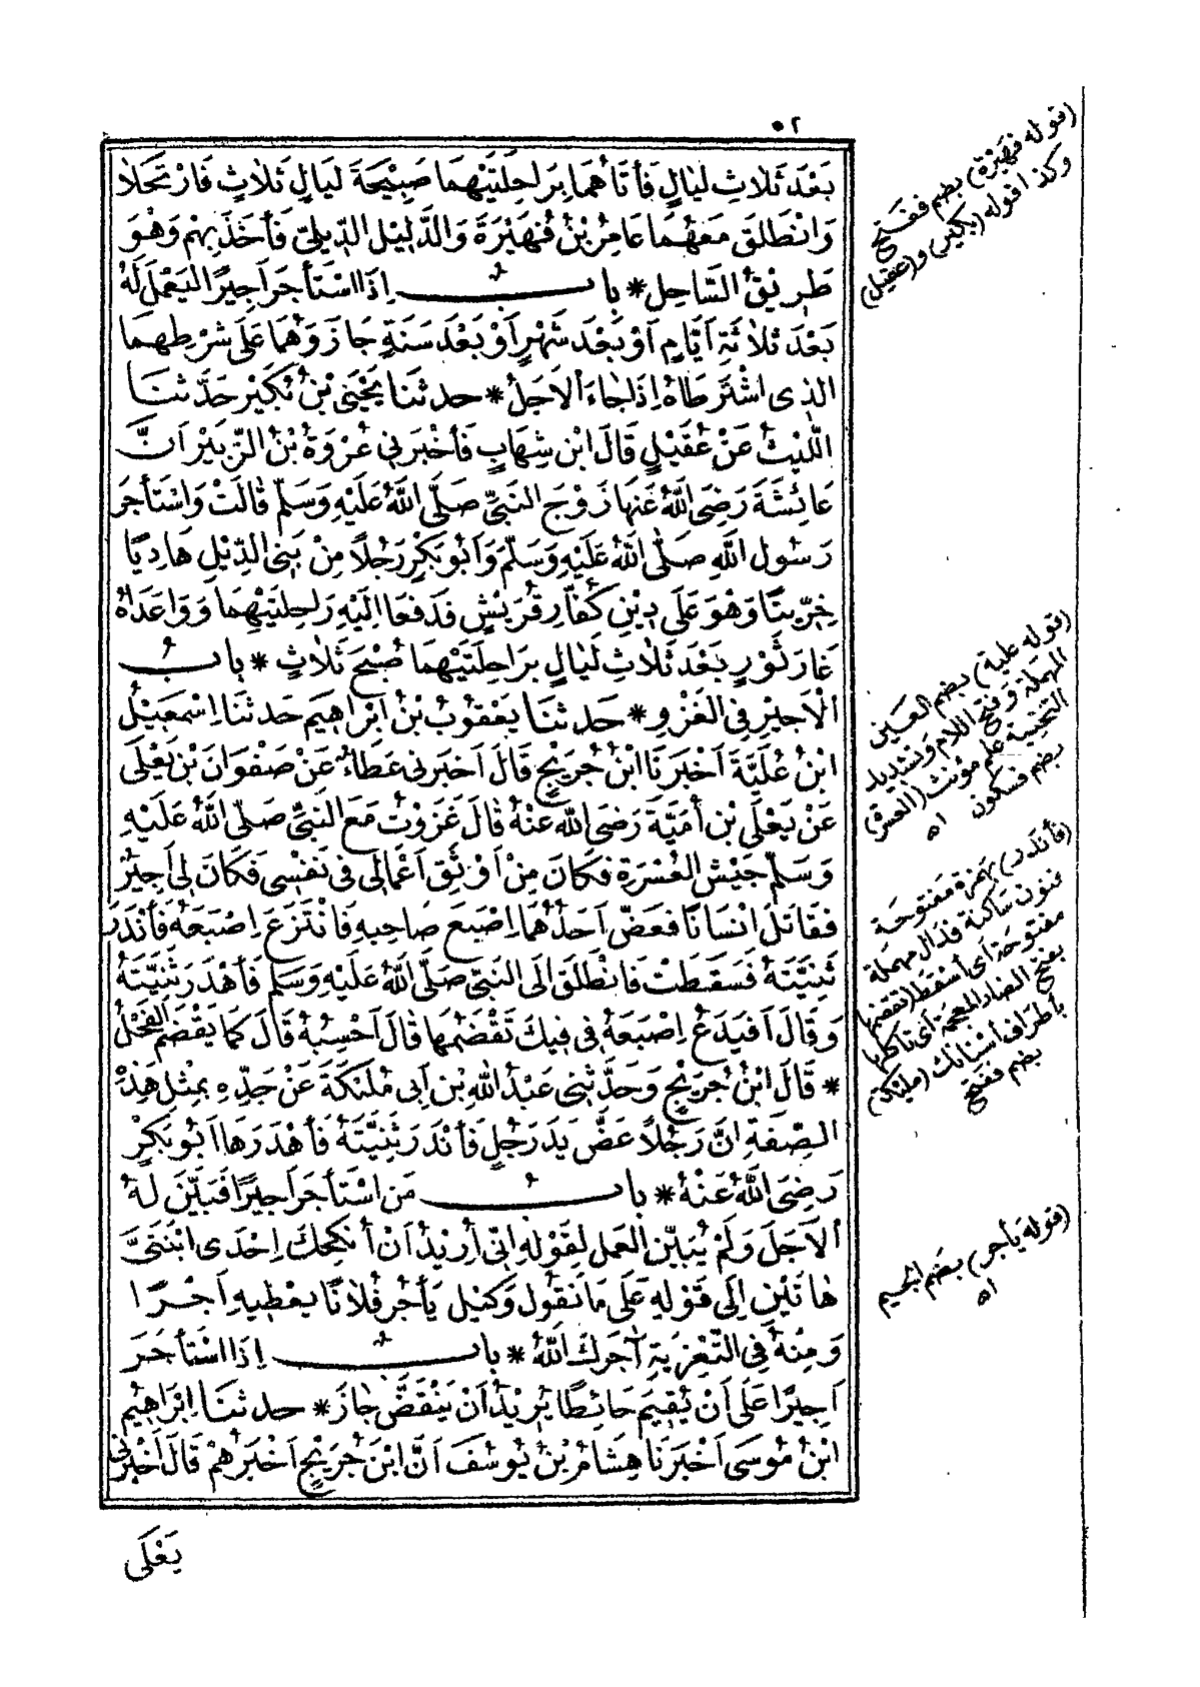 ٥٢
بَعْدَ ثَلَاثِ لَيَالٍ فَأَتَاهُمَا بِرَاحِلَتَيْهِمَا صَبِيْحَةَ لَيَالٍ ثَلَاثٍ فَارْتَحَلَا
وَانْطَلَقَ مَعَهُمَا عَامِرُ بْنُ فُهَيْرَةَ وَالدَّلِيْلُ الدِّيلِيُّ فَأَخَذَ بِهِمْ وَهْوَ
طَرِيْقُ السَّاحِلِ * بابُ إِذَا اسْتَأْجَرَ أَجِيرًا لِيَعْمَلَ لَهُ
بَعْدَ ثَلَاثَةِ أَيَّامٍ أَوْ بَعْدَ شَهْرٍ أَوْ بَعْدَ سَنَةٍ جَازَ وَهُمَا عَلَى شَرْطِهِمَا
الَّذِي اشْتَرَطَاهُ إِذَا جَاءَ الْأَجَلُ * حدثنا يَحْيَى بْنُ بُكَيْرٍ حَدَّثَنَا
اللَّيْثُ عَنْ عُقَيْلٍ قَالَ ابْنُ شِهَابٍ فَأَخْبَرَنِي عُرْوَةُ بْنُ الزُّبَيْرِ أَنَّ
عَائِشَةَ رَضِيَ اللّٰهُ عَنْهَا زَوْجَ النَّبِيِّ صَلَّى اللّٰهُ عَلَيْهِ وَسَلَّمَ قَالَتْ وَاسْتَأْجَرَ
رَسُولُ اللّٰهِ صَلَّى اللّٰهُ عَلَيْهِ وَسَلَّمَ وَأَبُو بَكْرٍ رَجُلًا مِنْ بَنِي الدِّيْلِ هَادِيًا
خِرِّيتًا وَهْوَ عَلَى دِيْنِ كُفَّارِ قُرَيْشٍ فَدَفَعَا إِلَيْهِ رَاحِلَتَيْهِمَا وَوَاعَدَاهُ
غَارَ ثَوْرٍ بَعْدَ ثَلَاثِ لَيَالٍ بِرَاحِلَتَيْهِمَا صُبْحَ ثَلَاثٍ * بابُ
الْأَجِيْرِ فِي الْغَزْوِ * حَدثنا يَعْقُوبُ بْنُ إِبْرَاهِيمَ حَدثنا إِسْمٰعِيْلُ
ابْنُ عُلَيَّةَ أَخْبَرَنَا ابْنُ جُرَيْجٍ قَالَ أَخْبَرَنِي عَطَاءٌ عَنْ صَفْوَانَ بْنِ يَعْلَى
عَنْ يَعْلَى بْنِ أُمَيَّةَ رَضِيَ اللّٰهُ عَنْهُ قَالَ غَزَوْتُ مَعَ النَّبِيِّ صَلَّى اللّٰهُ عَلَيْهِ
وَسَلَّمَ جَيْشَ الْعُسْرَةِ فَكَانَ مِنْ أَوْثَقِ أَعْمَالِي فِي نَفْسِي فَكَانَ لِي أَجِيْرٌ
فَقَاتَلَ إِنْسَانًا فَعَضَّ أَحَدُهُمَا إِصْبَعَ صَاحِبِهِ فَانْتَزَعَ إِصْبَعَهُ فَأَنْدَرَ
ثَنِيَّتَهُ فَسَقَطَتْ فَانْطَلَقَ إِلَى النَّبِيِّ صَلَّى اللّٰهُ عَلَيْهِ وَسَلَّمَ فَأَهْدَرَ ثَنِيَّتَهُ
وَقَالَ أَفَيَدَعُ إِصْبَعَهُ فِي فِيكَ تَقْضَمُهَا قَالَ أَحْسِبُهُ قَالَ كَمَا يَقْضَمُ الْفَحْلُ
* قَالَ ابْنُ جُرَيْجٍ وَحَدَّثَنِي عَبْدُ اللّٰهِ بْنِ أَبِي مُلَيْكَةَ عَنْ جَدِّهِ بِمِثْلِ هٰذِهِ
الصِّفَةِ أَنَّ رَجُلًا عَضَّ يَدَ رَجُلٍ فَأَنْدَرَ ثَنِيَّتَهُ فَأَهْدَرَهَا أَبُو بَكْرٍ
رَضِيَ اللّٰهُ عَنْهُ * بابُ مَنِ اسْتَأْجَرَ أَجِيرًا فَبَيَّنَ لَهُ
الْأَجَلَ وَلَمْ يُبَيِّنِ الْعَمَلَ لِقَوْلِهِ إِنِّي أُرِيْدُ أَنْ أُنْكِحَكَ إِحْدَى ابْنَتَيَّ
هَاتَيْنِ إِلَى قَوْلِهِ عَلَى مَا نَقُولُ وَكِيْلٌ يَأْجُرُ فُلَانًا يُعْطِيهِ أَجْرًا
وَمِنْهُ فِي التَّعْزِيَةِ آجَرَكَ اللّٰهُ * بابُ إِذَا اسْتَأْجَرَ
أَجِيْرًا عَلَى أَنْ يُقِيْمَ حَائِطًا يُرِيْدُ أَنْ يَنْقَضَّ جَازَ * حدثنا إِبْرَاهِيْمُ
ابْنُ مُوسَى أَخْبَرَنَا هِشَامُ بْنُ يُوسُفَ أَنَّ ابْنَ جُرَيْجٍ أَخْبَرَهُمْ قَالَ أَخْبَرَنِي
يَعْلَى
(قوله فهيرة) بضم ففتح
وكذا قوله (بكير) و(عقيل)
(قوله علية) بضم العين
المهملة وفتح اللام وتشديد
التحتية علم مؤنث (العسرة)
بضم فسكون اه
(فأندر) بهمزة مفتوحة
فنون ساكنة فدال مهملة
مفتوحة أى أسقط (تقضمها)
بفتح الضاد المعجمة أى تأكلها
بأطراف أسنانك (مليكة)
بضم ففتح
(قوله يأجر) بضم الجيم
اه